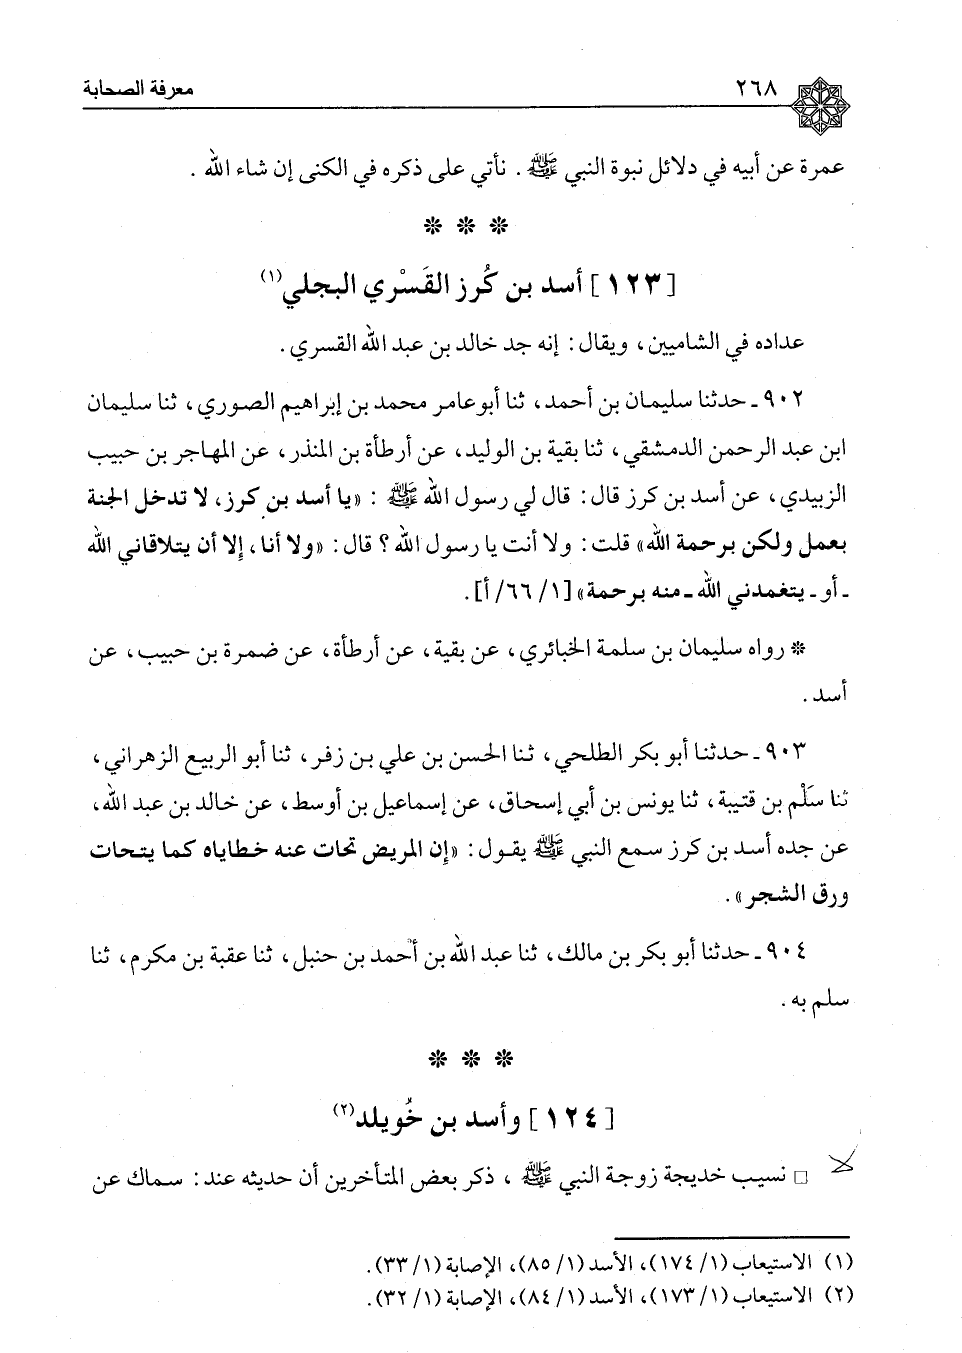 ٢٦٨ معرفة الصحابة
عمرة عن أبيه في دلائل نبوة النبي ﷺ . نأتي على ذكره في الكنى إن شاء الله .
❊ ❊ ❊
[١٢٣] أسد بن كُرز القَسْري البجلي(١)
عداده في الشاميين، ويقال: إنه جد خالد بن عبد الله القسري.
٩٠٢ ـ حدثنا سليمان بن أحمد، ثنا أبو عامر محمد بن إبراهيم الصوري، ثنا سليمان
ابن عبد الرحمن الدمشقي، ثنا بقية بن الوليد، عن أرطأة بن المنذر، عن المهاجر بن حبيب
الزبيدي، عن أسد بن كرز قال: قال لي رسول الله ﷺ : «يا أسد بن كرز، لا تدخل الجنة
بعمل ولكن برحمة الله» قلت: ولا أنت يا رسول الله؟ قال: «ولا أنا، إلا أن يتلاقاني الله
ـ أو ـ يتغمدني الله ـ منه برحمة» [١/ ٦٦/ أ].
❊ رواه سليمان بن سلمة الخبائري، عن بقية، عن أرطأة، عن ضمرة بن حبيب، عن
أسد.
٩٠٣ ـ حدثنا أبو بكر الطلحي، ثنا الحسن بن علي بن زفر، ثنا أبو الربيع الزهراني،
ثنا سَلْم بن قتيبة، ثنا يونس بن أبي إسحاق، عن إسماعيل بن أوسط، عن خالد بن عبد الله،
عن جده أسد بن كرز سمع النبي ﷺ يقول: «إن المريض تحات عنه خطاياه كما يتحات
ورق الشجر».
٩٠٤ ـ حدثنا أبو بكر بن مالك، ثنا عبد الله بن أحمد بن حنبل، ثنا عقبة بن مكرم، ثنا
سلم به.
❊ ❊ ❊
[١٢٤] وأسد بن خُويلد(٢)
□ نسيب خديجة زوجة النبي ﷺ ، ذكر بعض المتأخرين أن حديثه عند: سماك عن
(١) الاستيعاب (١/ ١٧٤)، الأسد (١/ ٨٥)، الإصابة (١/ ٣٣).
(٢) الاستيعاب (١/ ١٧٣)، الأسد (١/ ٨٤)، الإصابة (١/ ٣٢).